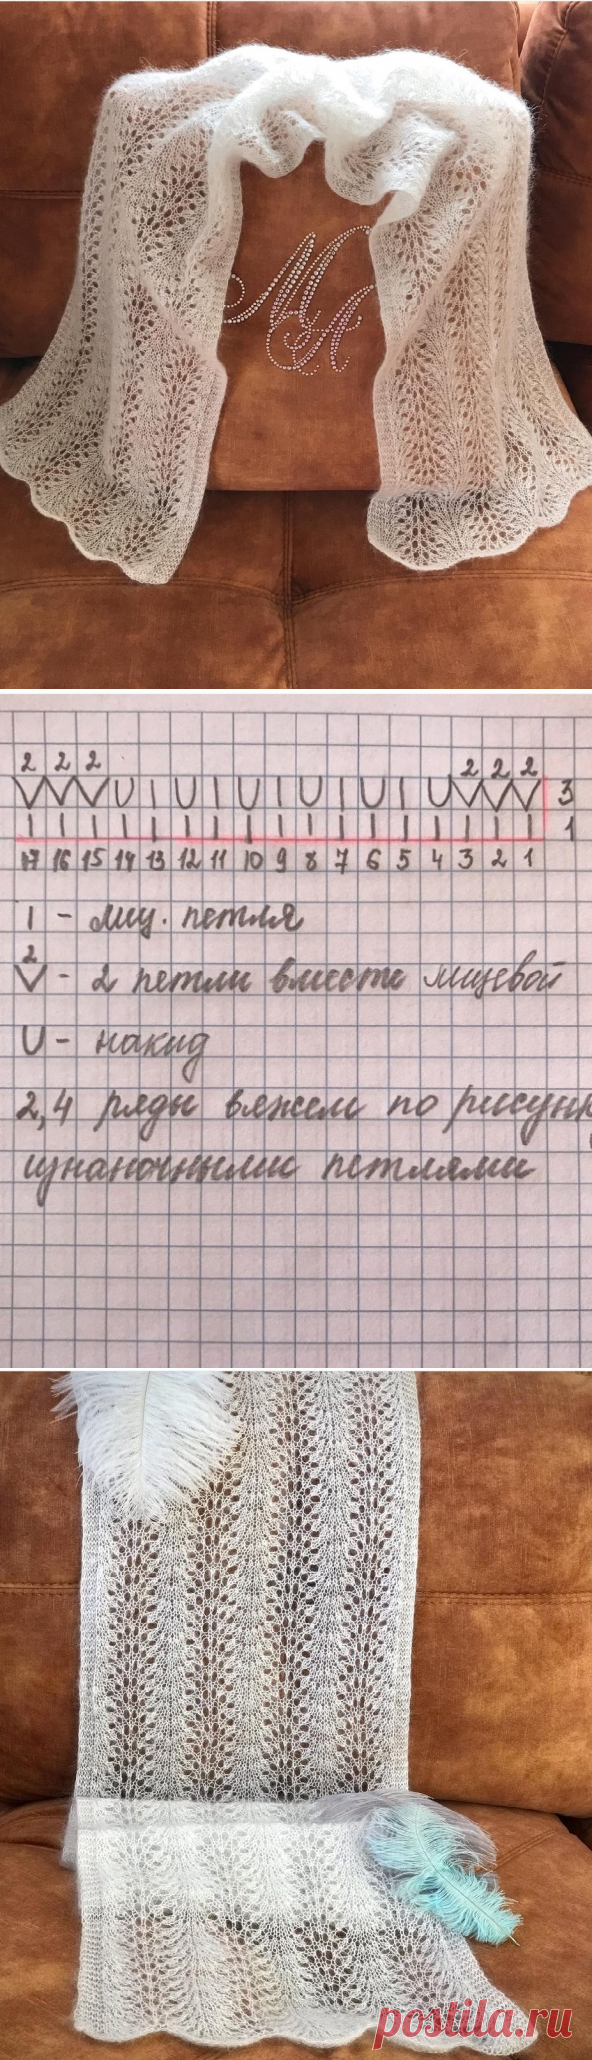 МА
2 2 2 2 2 2
V V V U I U I U I U I U I U V V V 3
I I I I I I I I I I I I I I I I I 1
17 16 15 14 13 12 11 10 9 8 7 6 5 4 3 2 1
I - лиц. петля
2
V - 2 петли вместе лицевой
U - накид
2,4 ряды вяжем по рисунк
изнаночными петлями
postila.ru